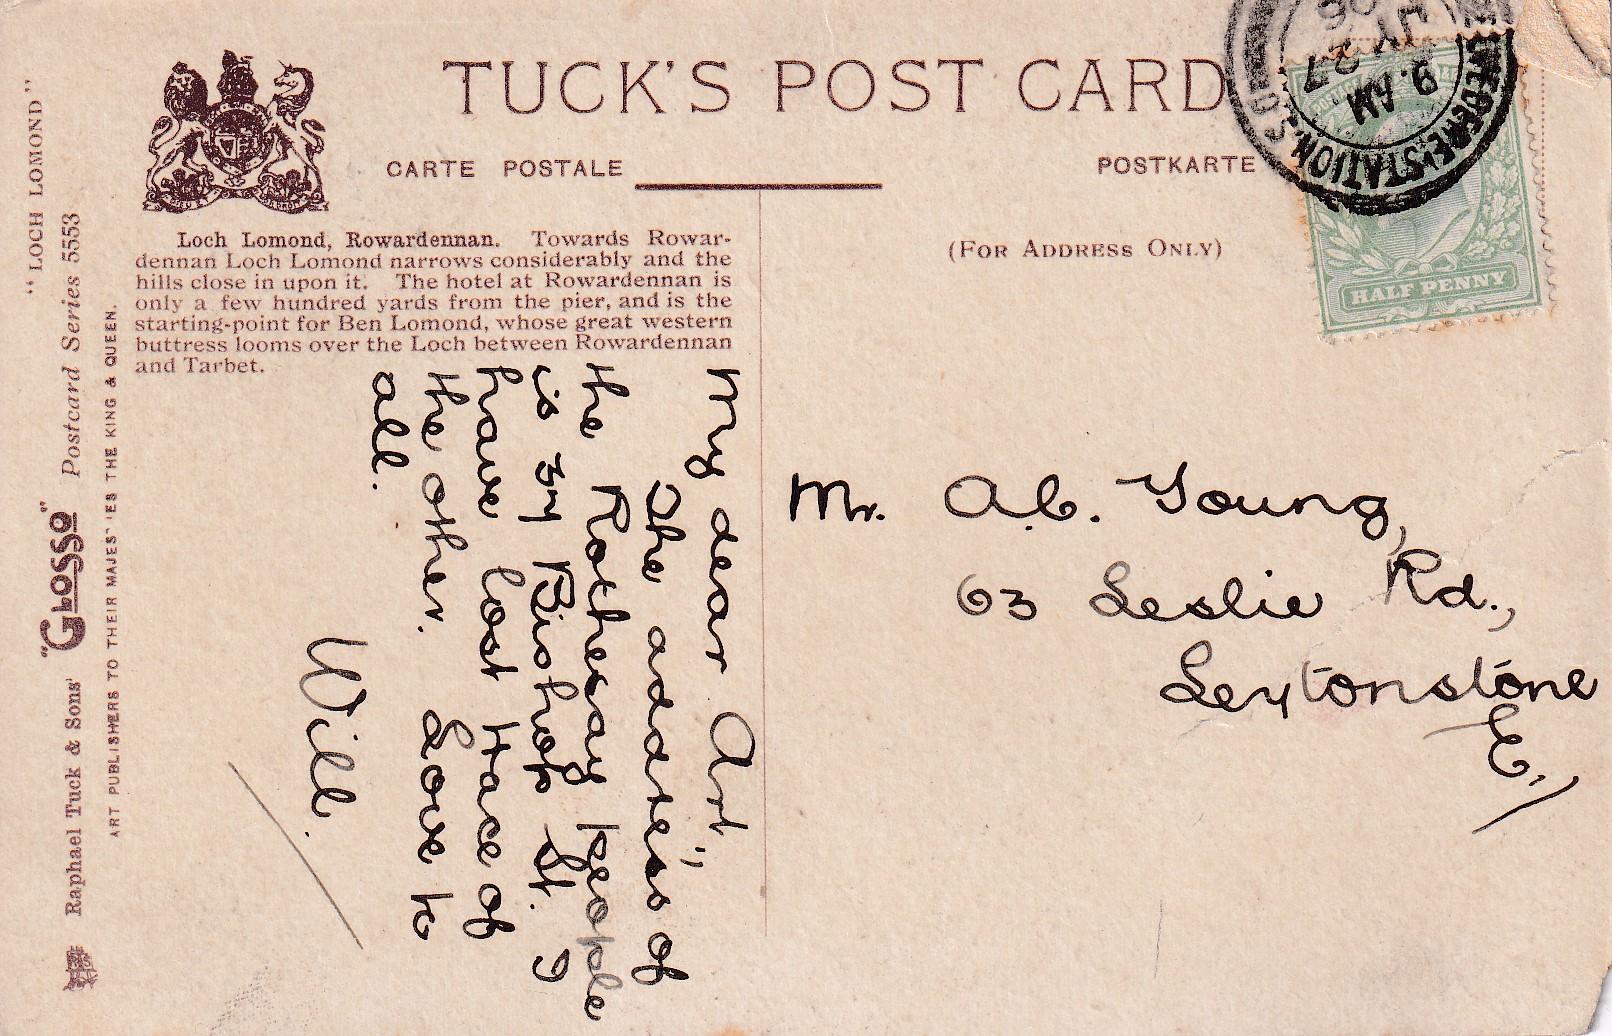 TUCK'S POST CARD
CARTE POSTALE
POSTKARTE
(FOR ADDRESS ONLY)
"LOCH LOMOND"
Raphael Tuck & Sons' "GLOSSO" Postcard Series 5553
ART PUBLISHERS TO THEIR MAJESTIES THE KING & QUEEN.
Loch Lomond, Rowardennan. Towards Rowar-
dennan Loch Lomond narrows considerably and the
hills close in upon it. The hotel at Rowardennan is
only a few hundred yards from the pier, and is the
starting-point for Ben Lomond, whose great western
buttress looms over the Loch between Rowardennan
and Tarbet.
My dear Art,
The address of
the Rothesay people
is 37 Bishop St. I
have lost trace of
the other. Love to
all.
Will.
Mr. A.C. Young,
63 Leslie Rd.,
Leytonstone
E.
9. AM
JY 27
06
STATION S.O.
HALF PENNY